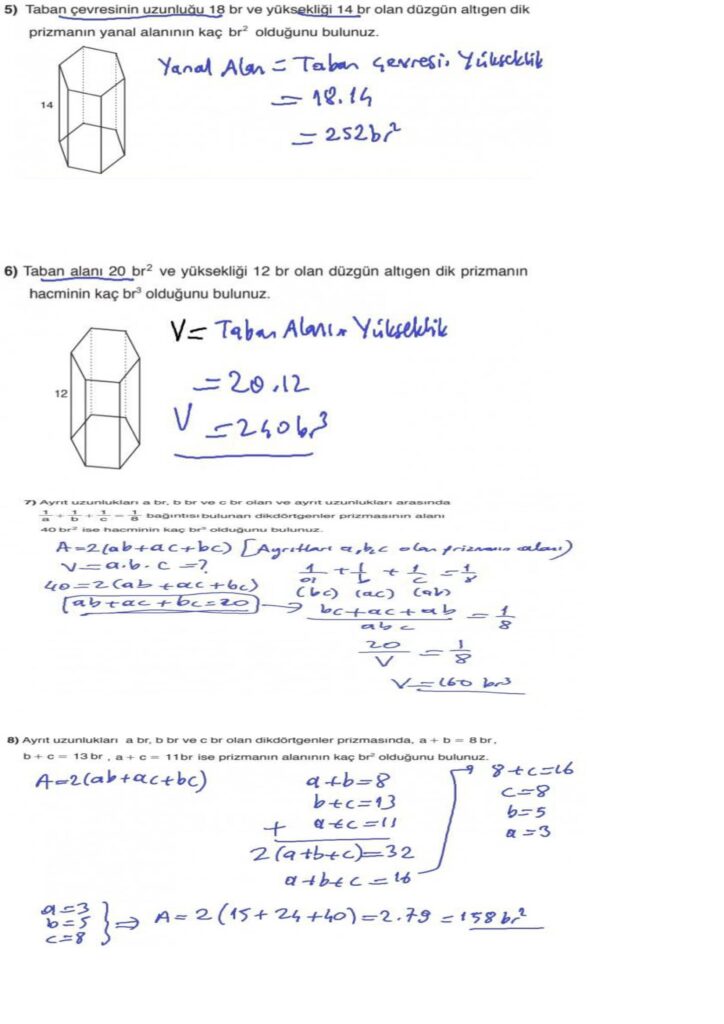 5) Taban çevresinin uzunluğu 18 br ve yüksekliği 14 br olan düzgün altıgen dik
prizmanın yanal alanının kaç br² olduğunu bulunuz.
14
Yanal Alan = Taban Çevresi . Yükseklik
= 18.14
= 252 br²
6) Taban alanı 20 br² ve yüksekliği 12 br olan düzgün altıgen dik prizmanın
hacminin kaç br³ olduğunu bulunuz.
12
V = Taban Alanı . Yükseklik
= 20.12
V = 240 br³
7) Ayrıt uzunlukları a br, b br ve c br olan ve ayrıt uzunlukları arasında
1/a + 1/b + 1/c = 1/8 bağıntısı bulunan dikdörtgenler prizmasının alanı
40 br² ise hacminin kaç br³ olduğunu bulunuz.
A=2(ab+ac+bc) [Ayrıtları a,b,c olan prizmanın alanı)
V=a.b.c=?
1/a + 1/b + 1/c = 1/8
40=2(ab+ac+bc)
(bc) (ac) (ab)
ab+ac+bc=20 → (bc+ac+ab)/abc = 1/8
20/V = 1/8
V=160 br³
8) Ayrıt uzunlukları a br, b br ve c br olan dikdörtgenler prizmasında, a + b = 8 br ,
b + c = 13 br , a + c = 11 br ise prizmanın alanının kaç br² olduğunu bulunuz.
A=2(ab+ac+bc)
a+b=8
b+c=13
+ a+c=11
2(a+b+c)=32
a+b+c=16
8+c=16
c=8
b=5
a=3
a=3
b=5
c=8
⇒ A=2(15+24+40)=2.79=158 br²